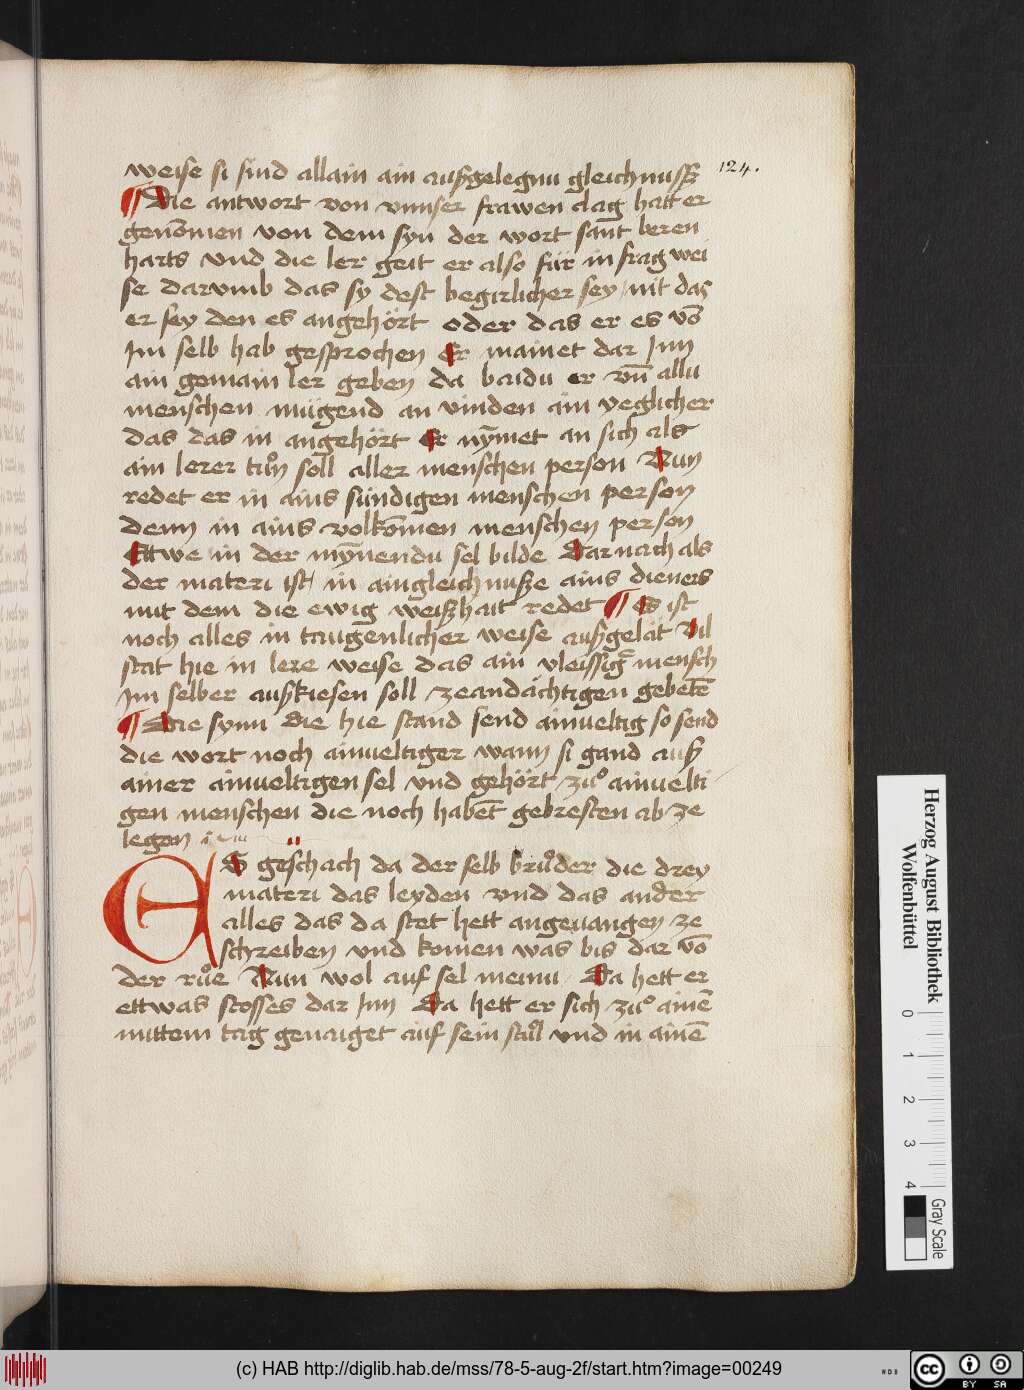 weise si sind allain ain außgelegnu gleichnuß
124.
¶ Die antwort von vnnser frawen clag hatt er
genōmen von dem syn der wort sant beren
harts vnd die ler geit er also für in frag wei
se darvmb das sy dest begirlicher sey nit das
er sey den es angehört oder das er es vō
Im selb hab gesprochen Er mainet dar Inn
ain gemain ler geben da baidu er vn̄ allu
menschen mügend an vinden ain yeglicher
das das in angehört Er nȳmet an sich als
ain lerer tůn soll aller menschen person Nun
redet er in ains sündigen menschen person
denn in ains volkōmen menschen person
Ettwe in der mȳnendu sel bilde Darnach als
der materi ist in aingleichnuße ains dieners
mit dem die ewig weißhait redet ¶ Es ist
noch alles in taugenlicher weise außgelät Vil
stat hie in lere weise das ain vleissig mensch
Im selber außkiesen soll ze andächtigen gebetē
¶ Die synn die hie stand send ainueltig so send
die wort noch ainueltiger wann si gand auß
ainer ainueltigen sel vnd gehört zů ainuelti
gen menschen die noch habēt gebresten ab ze
legen
ES geschach da der selb brůder die drey
materi das leyden vnd das ander
alles das da stet hett angeuangen ze
schreiben vnd komen was bis dar vō
der růe Nun wol auf sel meinu Da hett er
ettwas stosses dar Inn Da hett er sich zů ainē
mittem tag genaiget auf sein stůl vnd in ainē
Herzog August Bibliothek
Wolfenbüttel
0 1 2 3 4
Gray Scale
(c) HAB http://diglib.hab.de/mss/78-5-aug-2f/start.htm?image=00249
WDB
cc BY SA